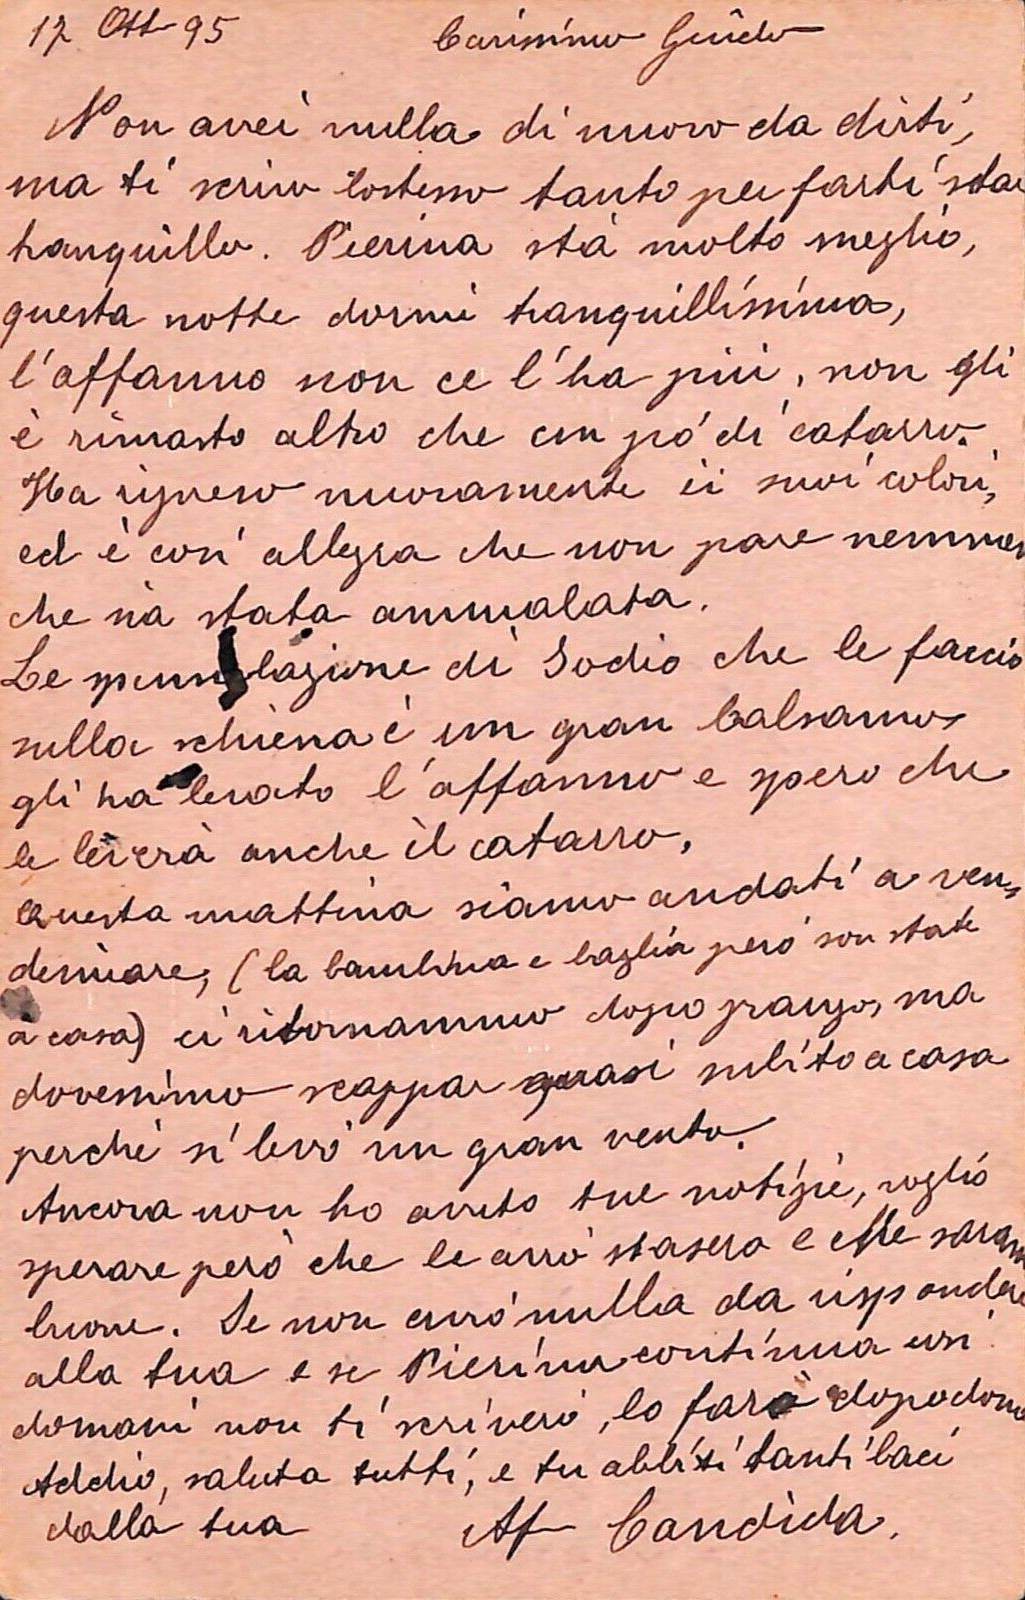 17 Ott 95 Carissimo Guido
Non avrei nulla di nuovo da dirti,
ma ti scrivo lostesso tanto per farti star
tranquillo. Pierina stà molto meglio,
questa notte dormì tranquillissima,
l'affanno non ce l'ha più, non gli
è rimasto altro che un pó di catarro.
Ha ripreso nuovamente ii suoi colori,
ed è così allegra che non pare nemmen
che sia stata ammalata.
Le spennellazione di Sodio che le faccio
sulla schiena è un gran balsamo
gli ha levato l'affanno e spero che
le leverà anche il catarro.
Questa mattina siamo andati a ven-
demiare, (la bambina e baglia peró son state
a casa) ci ritornammo dopo pranzo, ma
dovessimo scappar quasi subito a casa
perchè si levò un gran vento.
Ancora non ho avuto tue notizie, voglio
sperare però che le avrò stasera e che saran
buone. Se non avrò nulla da risponder
alla tua e se Pierina continua così
domani non ti scriverò, lo farò dopodom
Addio, saluta tutti, e tu abbiti tanti baci
dalla tua Af Candida.